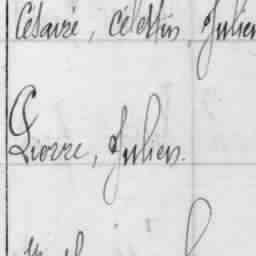 Césaire, Célestin, Julien
Pierre, Julien.